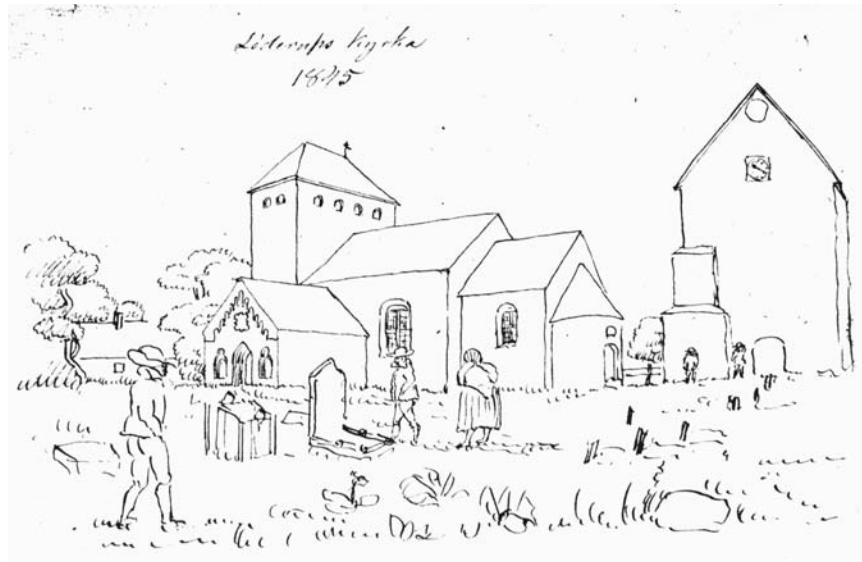 Löderups Kyrka
1845